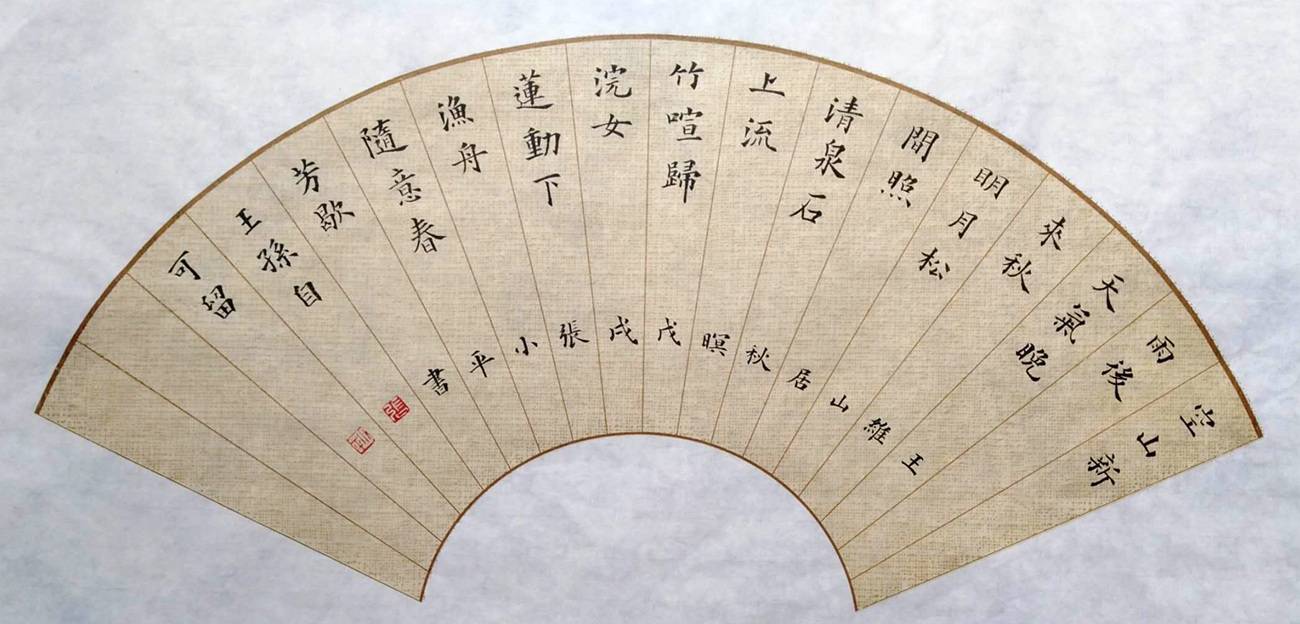 空山新
雨後
天氣晚
來秋
明月松
間照
清泉石
上流
竹喧歸
浣女
蓮動下
漁舟
隨意春
芳歇
王孫自
可留
王維山居秋暝戊戌張小平書